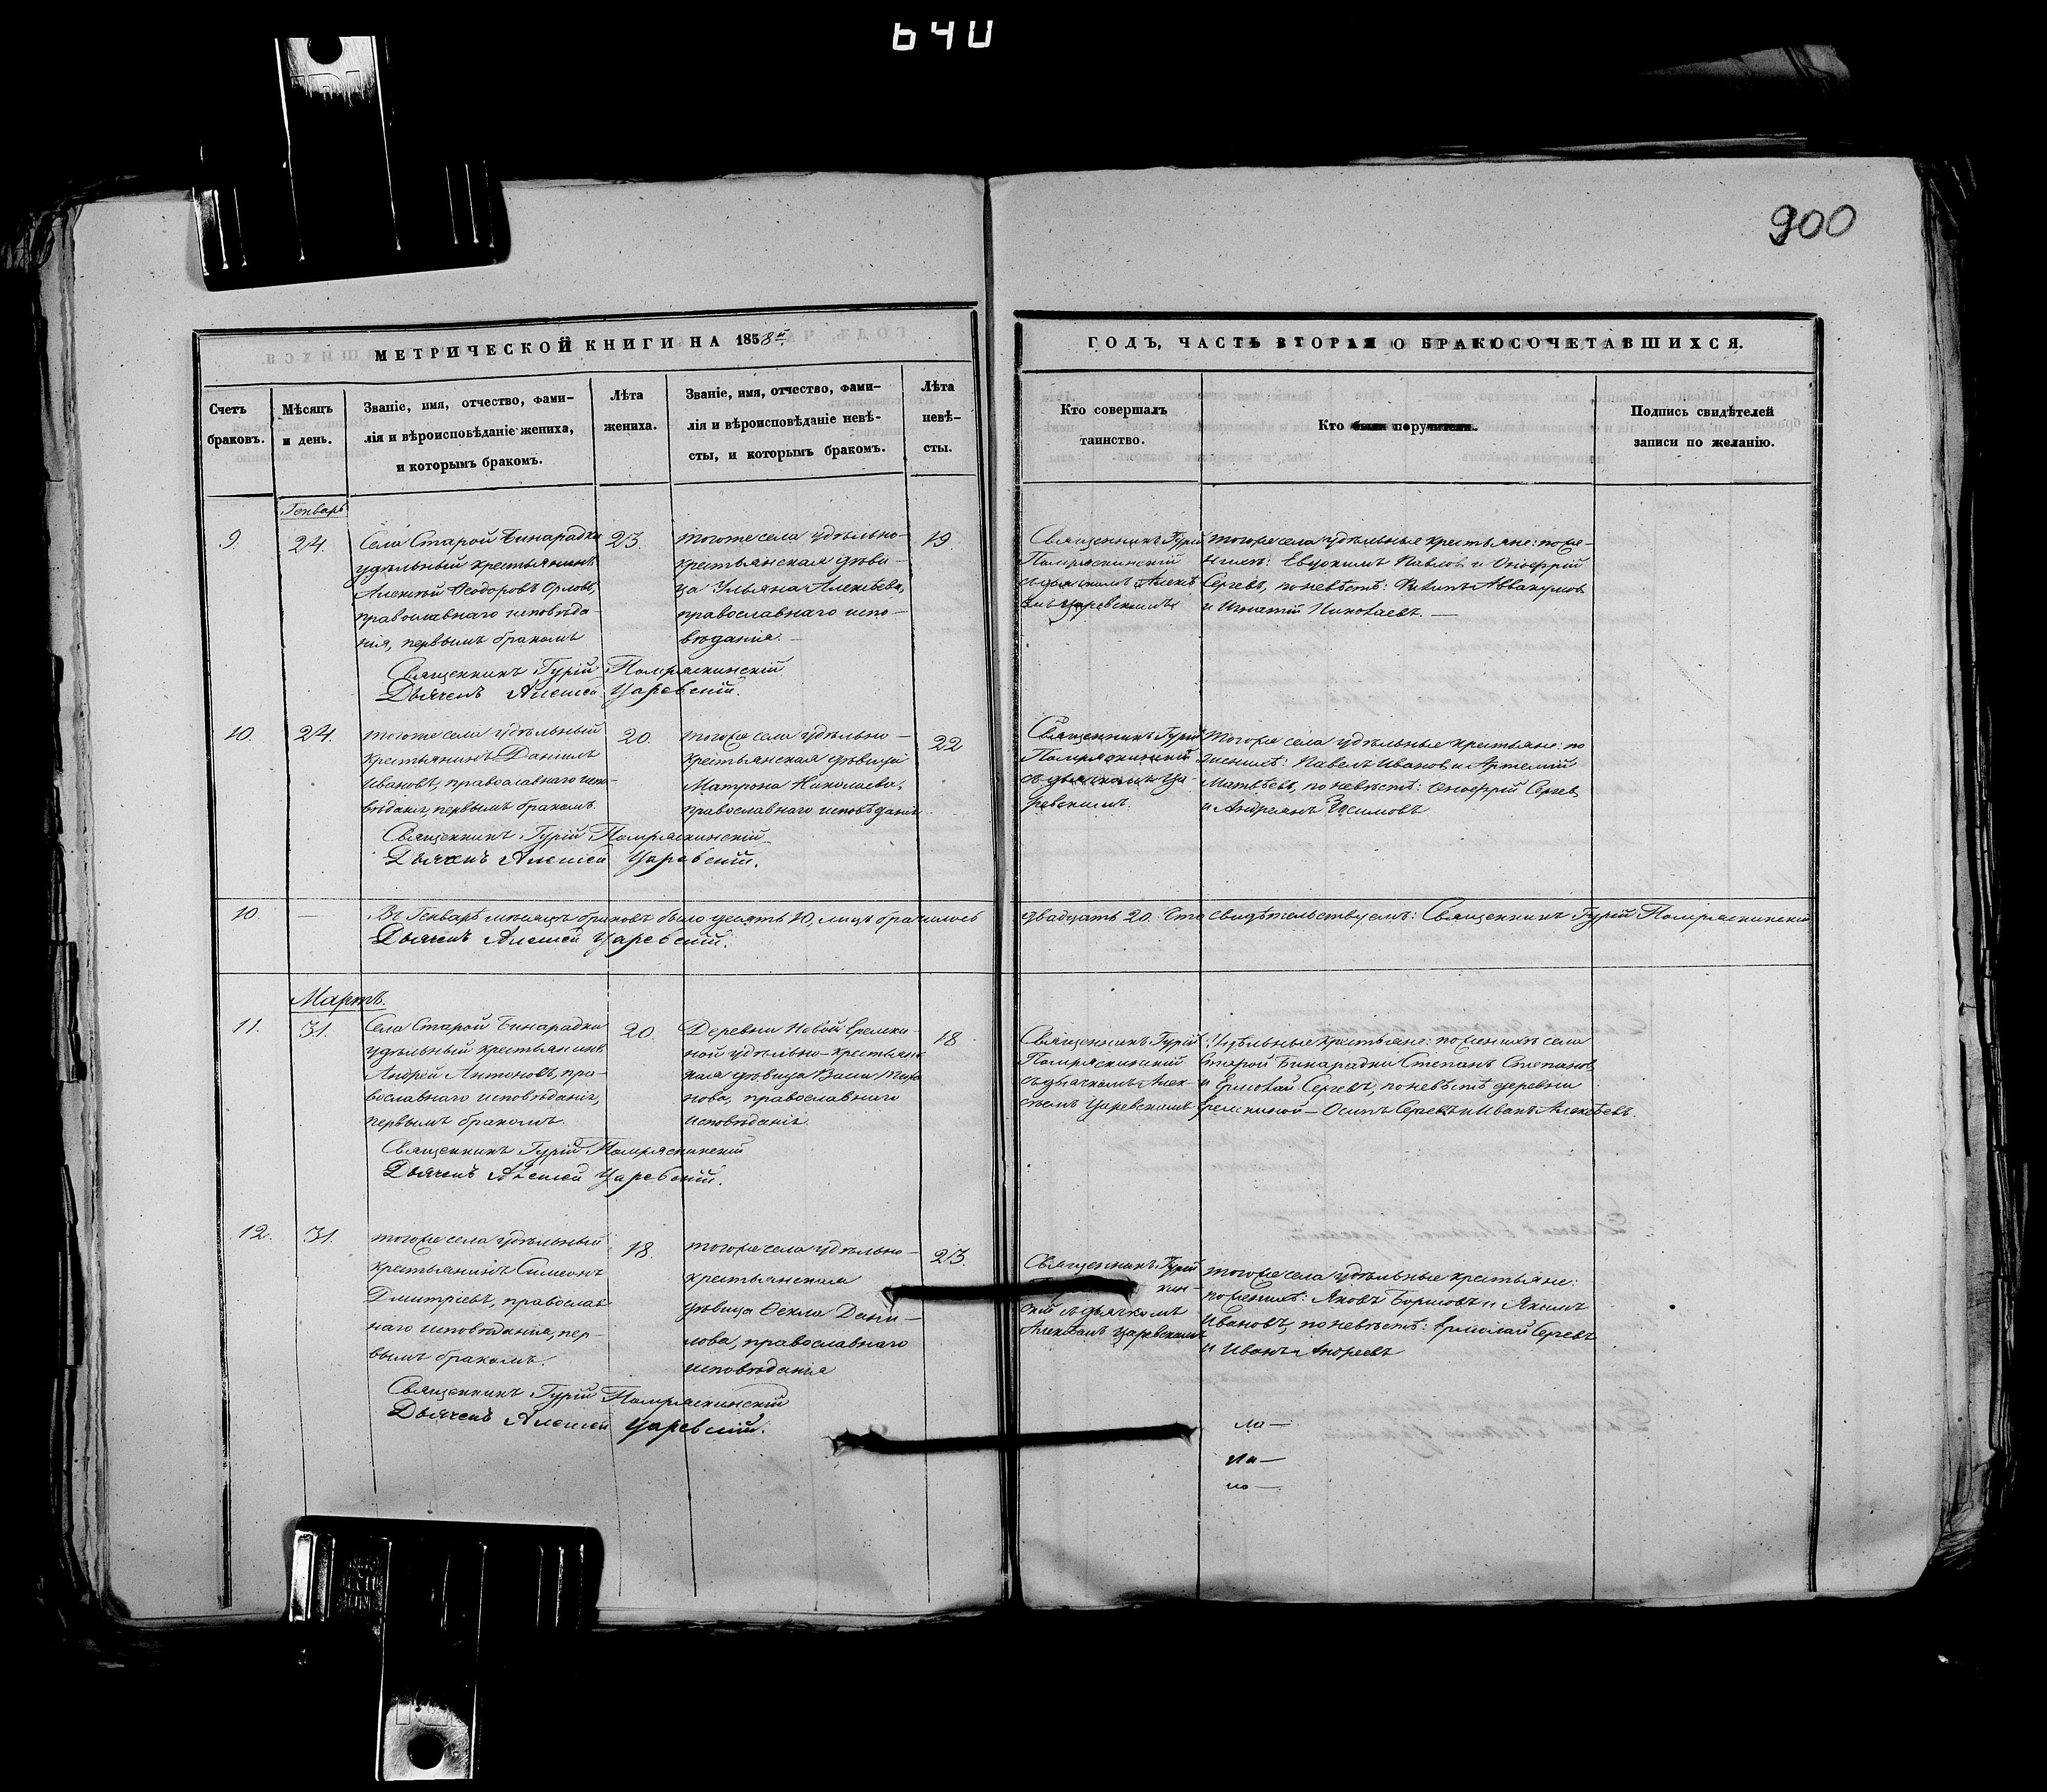 640
900
МЕТРИЧЕСКОЙ КНИГИ НА 1858й
Счетъ браковъ.
Мѣсяцъ и день.
Званіе, имя, отчество, фами-
лія и вѣроисповѣданіе жениха,
и которымъ бракомъ.
Лѣта
жениха.
Званіе, имя, отчество, фами-
лія и вѣроисповѣданіе невѣ-
сты, и которымъ бракомъ.
Лѣта
невѣ-
сты.
Генварь
9.
24.
Села Старой Бинарадки
удѣльный крестьянинъ
Алексѣй Ѳеодоровъ Орловъ,
православнаго исповѣда
нія, первымъ бракомъ
23.
тогоже села удѣльно-
крестьянская дѣви-
ца Ульяна Алексѣева,
православнаго испо-
вѣданія. —
19
Священникъ Гурій
Дьячекъ Алексей Царевскій.
10.
24.
тогоже села удѣльный
крестьянинъ Даніилъ
Ивановъ, православнаго испо-
вѣданія, первымъ бракомъ.
20.
тогоже села удѣльно-
крестьянская дѣвица
Матрона Николаева,
православнаго исповѣданія
22
Священникъ Гурій
Дьячекъ Алексей Царевскій.
10.
—
Въ Генварѣ мѣсяцѣ браковъ было десять 10, лицъ брачилось
Дьячекъ Алексей Царевскій.
Мартъ.
11.
31.
Села Старой Бинарадки
удѣльный крестьянинъ
Андрей Антоновъ, пра-
вославнаго исповѣданія,
первымъ бракомъ.
20.
Деревни Новой Еремки-
ной удѣльно-крестьян
ская дѣвица
православнаго
исповѣданія.
18
Священникъ Гурій
Дьячекъ Алексей Царевскій.
12.
31.
тогоже села удѣльный
крестьянинъ Симеонъ
Дмитріевъ, православ
наго исповѣданія, пер-
вымъ бракомъ.
18.
тогоже села удѣльно-
крестьянская
дѣвица Ѳекла Дани-
лова, православнаго
исповѣданія
23.
Священникъ Гурій
Дьячекъ Алексей Царевскій.
ГОДЪ, ЧАСТЬ ВТОРАЯ О БРАКОСОЧЕТАВШИХСЯ.
Кто совершалъ
таинство.
Кто были поручители.
Подпись свидѣтелей
записи по желанію.
Священникъ Гурій
съ дьячкомъ Алексѣ
емъ Царевскимъ
тогоже села удѣльные крестьяне: по же-
нихѣ: Евдокимъ Павловъ и Онофрій
Сергѣевъ, по невѣстѣ: Аввакумовъ
и Игнатій Николаевъ. —
Священникъ Гурій
съ дьячкомъ Ца-
ревскимъ.
тогоже села удѣльные крестьяне: по
женихѣ: Павелъ Ивановъ и Артемій
Матвѣевъ, по невѣстѣ: Онофрій Сергѣевъ
и Андреянъ Зосимовъ
двадцать 20. Что свидѣтельствуемъ: Священникъ Гурій
Священникъ Гурій
съ дьячкомъ Алек-
сѣемъ Царевскимъ
Удѣльные крестьяне: по женихѣ села
Старой Бинарадки Степанъ Степановъ
и Ермолай Сергѣевъ, по невѣстѣ деревни
Еремкиной — Осипъ Сергѣевъ и Иванъ Алексѣевъ.
Священникъ Гурій
кин-
скій съ дьячкомъ
Алексѣемъ Царевскимъ
тогоже села удѣльные крестьяне:
по женихѣ: Яковъ Борисовъ и Якимъ
Ивановъ, по невѣстѣ: Ермолай Сергѣевъ
и Иванъ Андреевъ